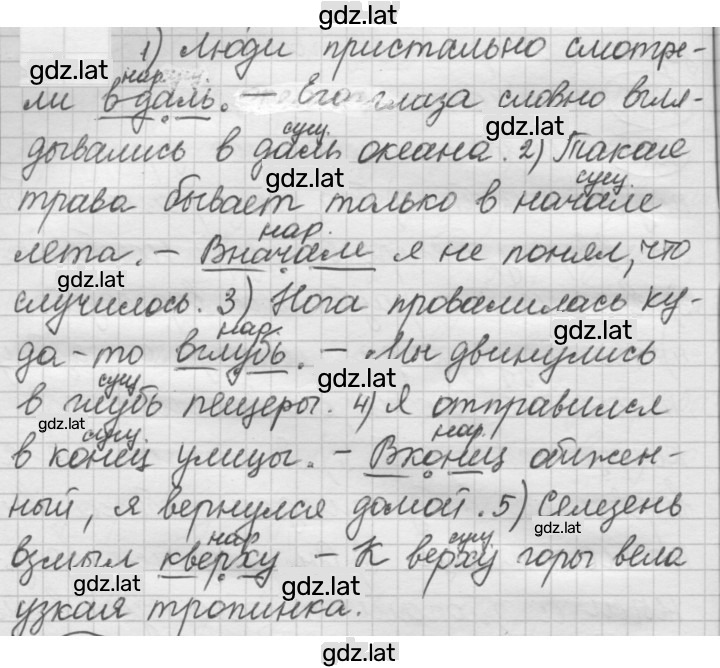 gdz.lat
1) Люди пристально смотре-
gdz.lat нар.
ли вдаль. – Его глаза словно вгля-
gdz.lat сущ. gdz.lat
дывались в даль океана. 2) Такая
gdz.lat сущ.
трава бывает только в начале
нар.
лета. – Вначале я не понял, что
gdz.lat
случилось. 3) Нога провалилась ку-
нар. gdz.lat
да-то вглубь. – Мы двинулись
сущ. gdz.lat
в глубь пещеры. 4) Я отправился
gdz.lat сущ. нар.
в конец улицы. – Вконец обижен-
ный, я вернулся домой. 5) Селезень
нар сущ gdz.lat
взмыл кверху – К верху горы вела
gdz.lat gdz.lat
узкая тропинка.
gdz.lat